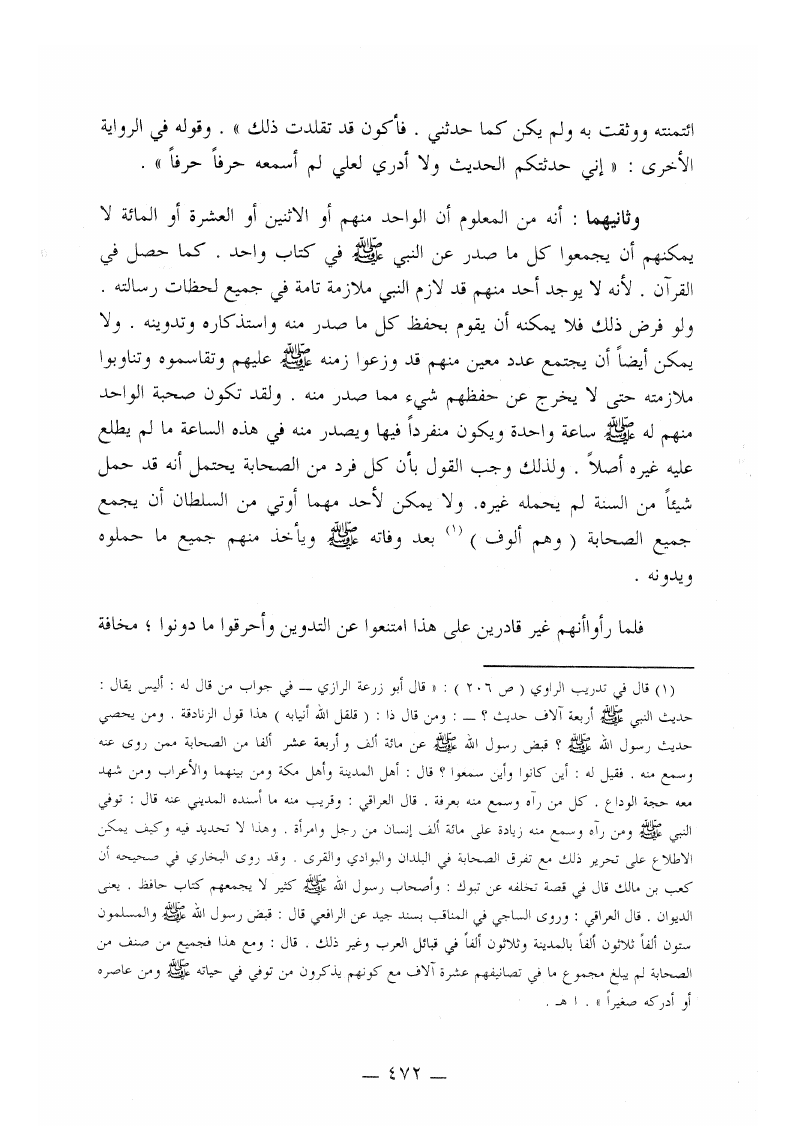 ائتمنته ووثقت به ولم يكن كما حدثني . فأكون قد تقلدت ذلك » . وقوله في الرواية
الأخرى : « إني حدثتكم الحديث ولا أدري لعلي لم أسمعه حرفاً حرفاً » .
وثانيهما : أنه من المعلوم أن الواحد منهم أو الاثنين أو العشرة أو المائة لا
يمكنهم أن يجمعوا كل ما صدر عن النبي ﷺ في كتاب واحد . كما حصل في
القرآن . لأنه لا يوجد أحد منهم قد لازم النبي ملازمة تامة في جميع لحظات رسالته .
ولو فرض ذلك فلا يمكنه أن يقوم بحفظ كل ما صدر منه واستذكاره وتدوينه . ولا
يمكن أيضاً أن يجتمع عدد معين منهم قد وزعوا زمنه ﷺ عليهم وتقاسموه وتناوبوا
ملازمته حتى لا يخرج عن حفظهم شيء مما صدر منه . ولقد تكون صحبة الواحد
منهم له ﷺ ساعة واحدة ويكون منفرداً فيها ويصدر منه في هذه الساعة ما لم يطلع
عليه غيره أصلاً . ولذلك وجب القول بأن كل فرد من الصحابة يحتمل أنه قد حمل
شيئاً من السنة لم يحمله غيره. ولا يمكن لأحد مهما أوتي من السلطان أن يجمع
جميع الصحابة ( وهم ألوف ) (١) بعد وفاته ﷺ ويأخذ منهم جميع ما حملوه
ويدونه .
فلما رأواأنهم غير قادرين على هذا امتنعوا عن التدوين وأحرقوا ما دونوا ؛ مخافة
(١) قال في تدريب الراوي ( ص ٢٠٦ ) : « قال أبو زرعة الرازي ــ في جواب من قال له : أليس يقال :
حديث النبي ﷺ أربعة آلاف حديث ؟ ــ : ومن قال ذا : ( قلقل الله أنيابه ) هذا قول الزنادقة . ومن يحصي
حديث رسول الله ﷺ ؟ قبض رسول الله ﷺ عن مائة ألف و أربعة عشر ألفا من الصحابة ممن روى عنه
وسمع منه . فقيل له : أين كانوا وأين سمعوا ؟ قال : أهل المدينة وأهل مكة ومن بينهما والأعراب ومن شهد
معه حجة الوداع . كل من رآه وسمع منه بعرفة . قال العراقي : وقريب منه ما أسنده المديني عنه قال : توفي
النبي ﷺ ومن رآه وسمع منه زيادة على مائة ألف إنسان من رجل وامرأة . وهذا لا تحديد فيه وكيف يمكن
الاطلاع على تحرير ذلك مع تفرق الصحابة في البلدان والبوادي والقرى . وقد روى البخاري في صحيحه أن
كعب بن مالك قال في قصة تخلفه عن تبوك : وأصحاب رسول الله ﷺ كثير لا يجمعهم كتاب حافظ . يعنى
الديوان . قال العراقي : وروى الساجي في المناقب بسند جيد عن الرافعي قال : قبض رسول الله ﷺ والمسلمون
ستون ألفاً ثلاثون ألفاً بالمدينة وثلاثون ألفاً في قبائل العرب وغير ذلك . قال : ومع هذا فجميع من صنف من
الصحابة لم يبلغ مجموع ما في تصانيفهم عشرة آلاف مع كونهم يذكرون من توفي في حياته ﷺ ومن عاصره
أو أدركه صغيراً » . ا هـ .
ــ ٤٧٢ ــ